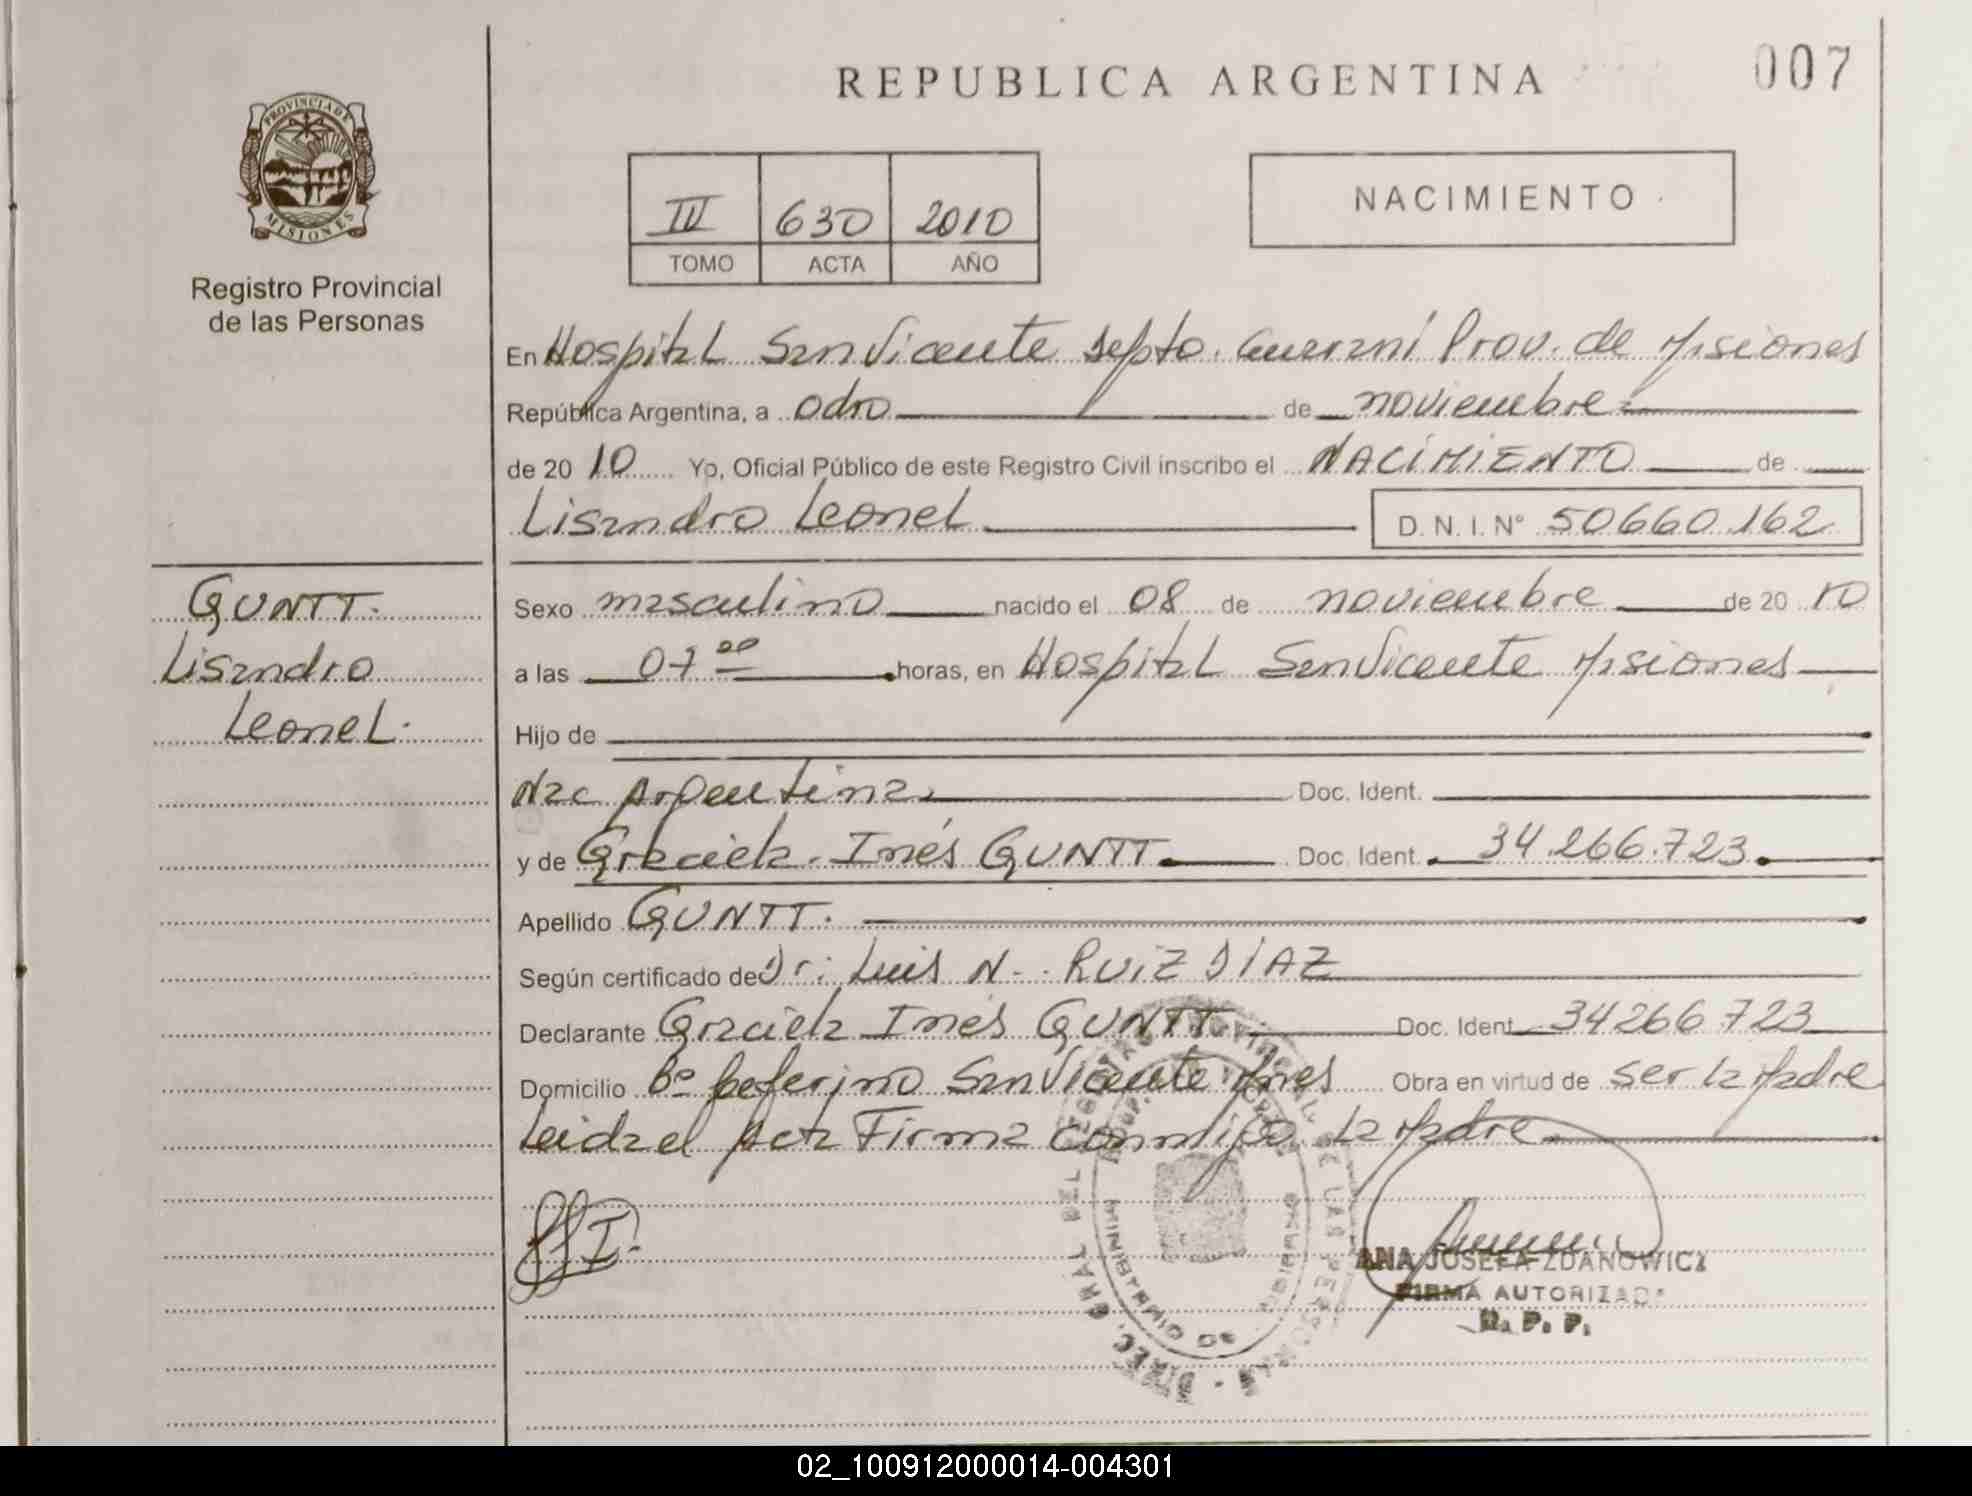 REPUBLICA ARGENTINA
007
PROVINCIA DE
MISIONES
Registro Provincial
de las Personas
IV 630 2010
TOMO ACTA AÑO
NACIMIENTO
En Hospital San Vicente Depto. Guaraní Prov. de Misiones
República Argentina, a ocho de noviembre
de 20 10 Yo, Oficial Público de este Registro Civil inscribo el NACIMIENTO de
Lisandro Leonel D. N. I. N° 50660.162
GUNTT.
Lisandro
Leonel.
Sexo masculino nacido el 08 de noviembre de 20 10
a las 07 00 horas, en Hospital San Vicente Misiones
Hijo de
Nac Argentina Doc. Ident.
y de Graciela Inés GUNTT Doc. Ident. 34.266.723
Apellido GUNTT.
Según certificado de Dr: Luis N. RUIZ DIAZ
Declarante Graciela Inés GUNTT Doc. Ident 34266723
Domicilio Bº Ceferino San Vicente Mnes Obra en virtud de ser la Madre
Leida el Acta Firma conmigo la Madre
ANA JOSEFA ZDANOWICZ
FIRMA AUTORIZADA
R. P. P.
DIREC. GRAL DEL REGISTRO PROVINCIAL DE LAS PERSONAS
MINISTERIO DE GOBIERNO
02_100912000014-004301